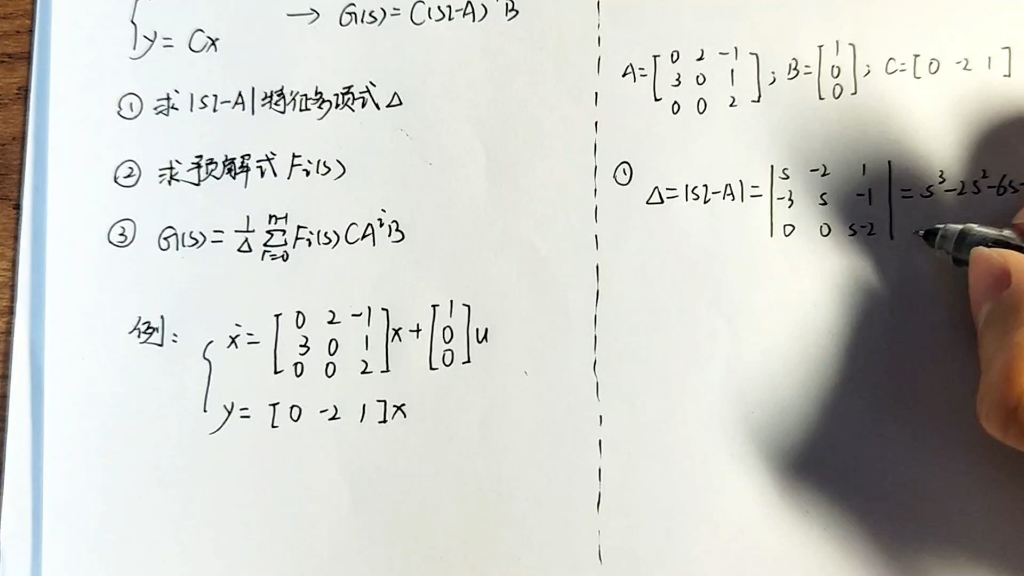 → G(s)=C(sI-A) B
y= Cx
① 求|sI-A|特征多项式Δ
② 求预解式 Fi(s)
③ G(s)= 1/Δ Σ_{i=0}^{n-1} Fi(s)CA^iB
例: ẋ= [0 2 -1
3 0 1
0 0 2]x+[1
0
0]u
y= [0 -2 1]x
A=[0 2 -1
3 0 1
0 0 2]; B=[1
0
0]; C=[0 -2 1]
① Δ=|sI-A|=|s -2 1
-3 s -1
0 0 s-2|=s³-2s²-6s